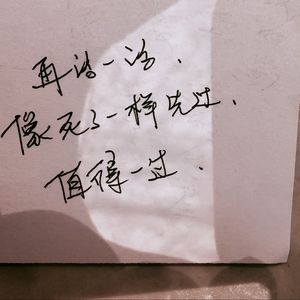 再活一次.
像死了一样先过.
值得一过.